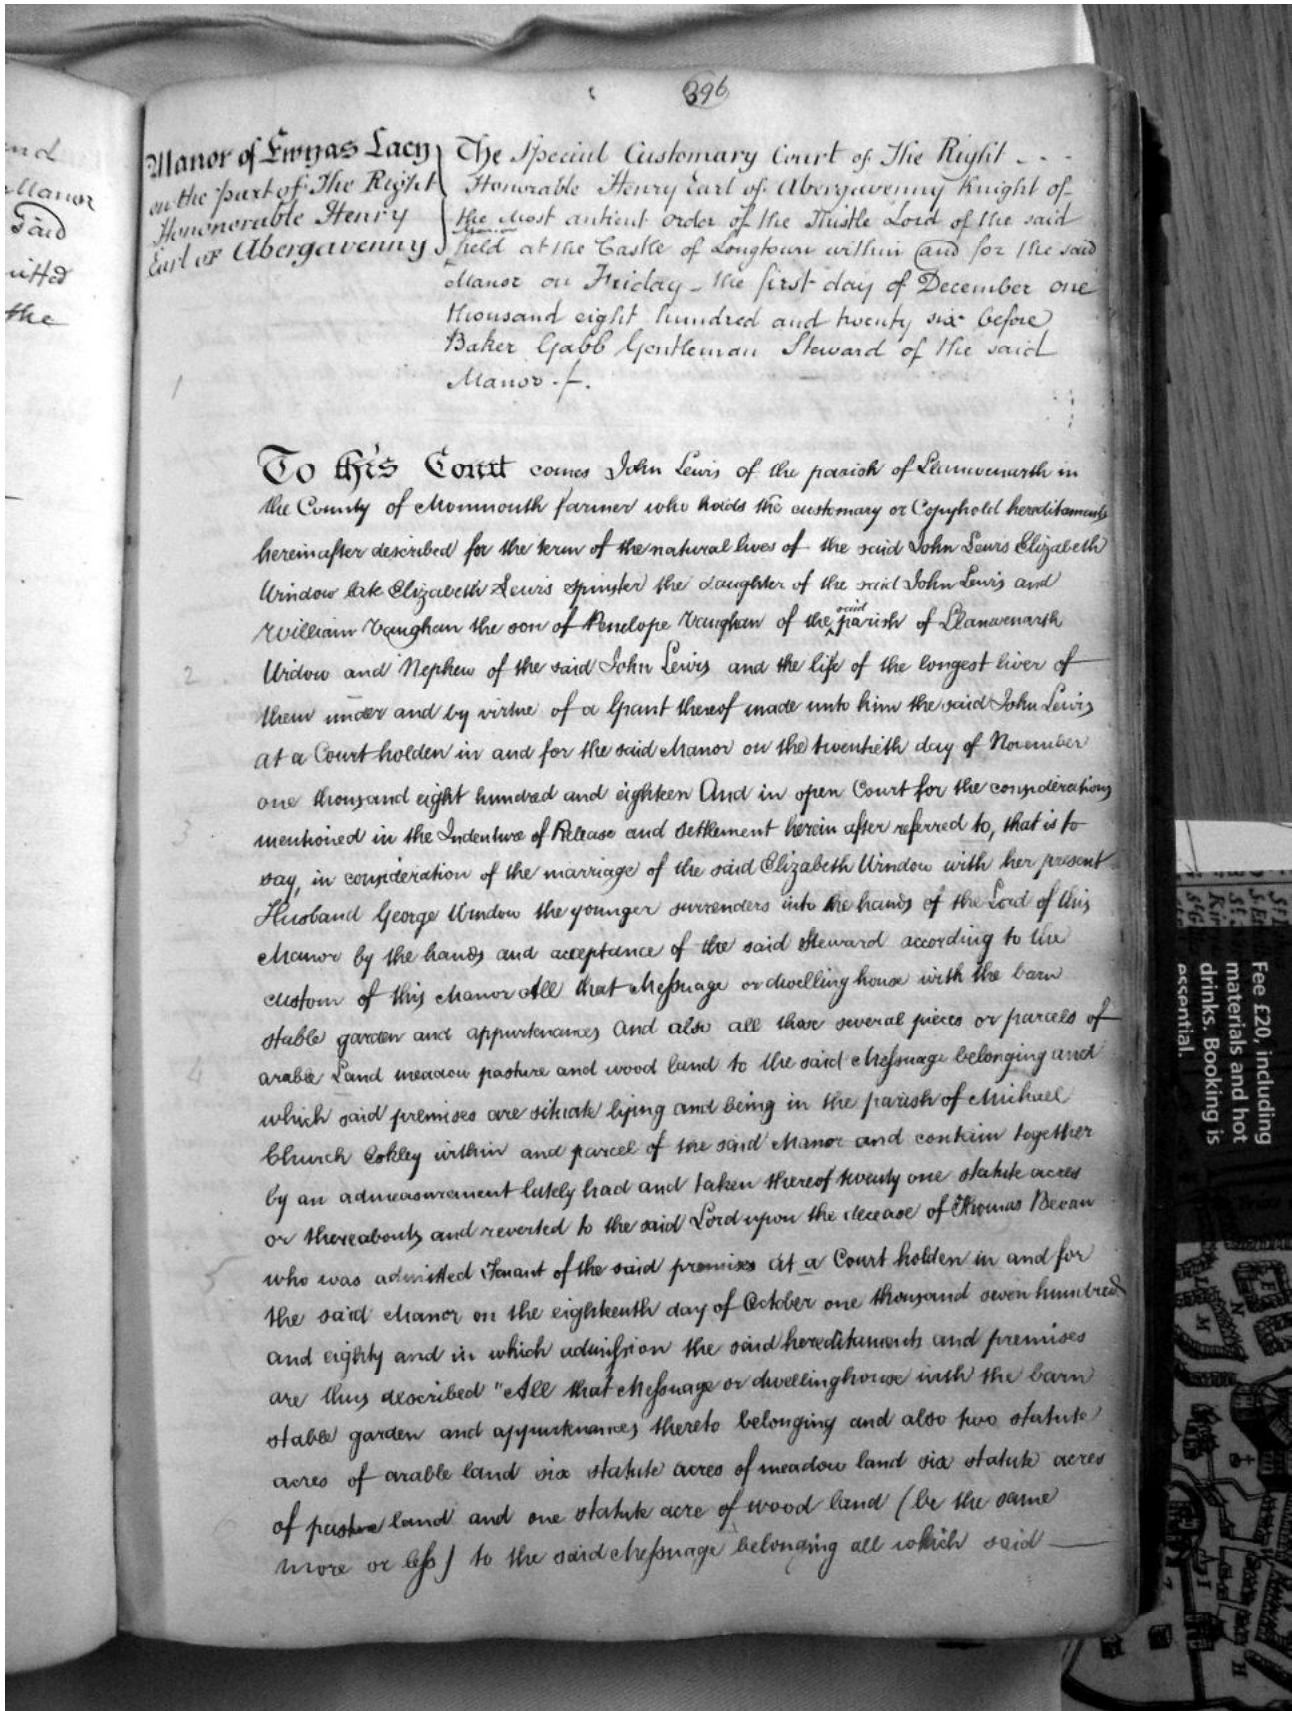 396
Manor of Ewyas Lacy
on the part of The Right
Hononorable Henry
Earl of Abergavenny
The Special Customary Court of The Right - - -
Honorable Henry Earl of Abergavenny Knight of
the Most antient order of the Thistle Lord of the said
Manor
held at the Castle of Longtown within and for the said
Manor on Friday - the first day of December one
thousand eight hundred and twenty six before
Baker Gabb Gentleman Steward of the said
Manor -/-.
1
To this Court comes John Lewis of the parish of Llanwenarth in
the County of Monmouth farmer who holds the customary or Copyhold hereditaments
hereinafter described for the term of the natural lives of the said John Lewis Elizabeth
Window late Elizabeth Lewis Spinster the daughter of the said John Lewis and
William Vaughan the son of Penelope Vaughan of the said parish of Llanwenarth
2
Widow and Nephew of the said John Lewis and the life of the longest liver of
them under and by virtue of a Grant thereof made unto him the said John Lewis
at a Court holden in and for the said Manor on the twentieth day of November
one thousand eight hundred and eighteen And in open Court for the considerations
3
mentioned in the Indenture of Release and settlement herein after referred to, that is to
say, in consideration of the marriage of the said Elizabeth Window with her present
Husband George Window the younger surrenders into the hands of the Lord of this
Manor by the hands and acceptance of the said Steward according to the
custom of this Manor All that Messuage or dwelling house with the barn
stable garden and appurtenances And also all those several pieces or parcels of
4
arable Land meadow pasture and wood land to the said Messuage belonging and
which said premises are situate lying and being in the parish of Michael
Church Eskley within and parcel of the said Manor and contain together
by an admeasurement lately had and taken thereof twenty one statute acres
or thereabouts and reverted to the said Lord upon the decease of Thomas Bevan
5
who was admitted Tenant of the said premises at a Court holden in and for
the said Manor on the eighteenth day of October one thousand seven hundred
and eighty and in which admission the said hereditaments and premises
are thus described "All that Messuage or dwellinghouse with the barn
stable garden and appurtenances thereto belonging and also two statute
acres of arable land six statute acres of meadow land six statute acres
of pasture land and one statute acre of wood land (be the same
more or less) to the said Messuage belonging all which said
nd
Manor
Said
itted
the
Fee £20, including
materials and hot
drinks. Booking is
essential.